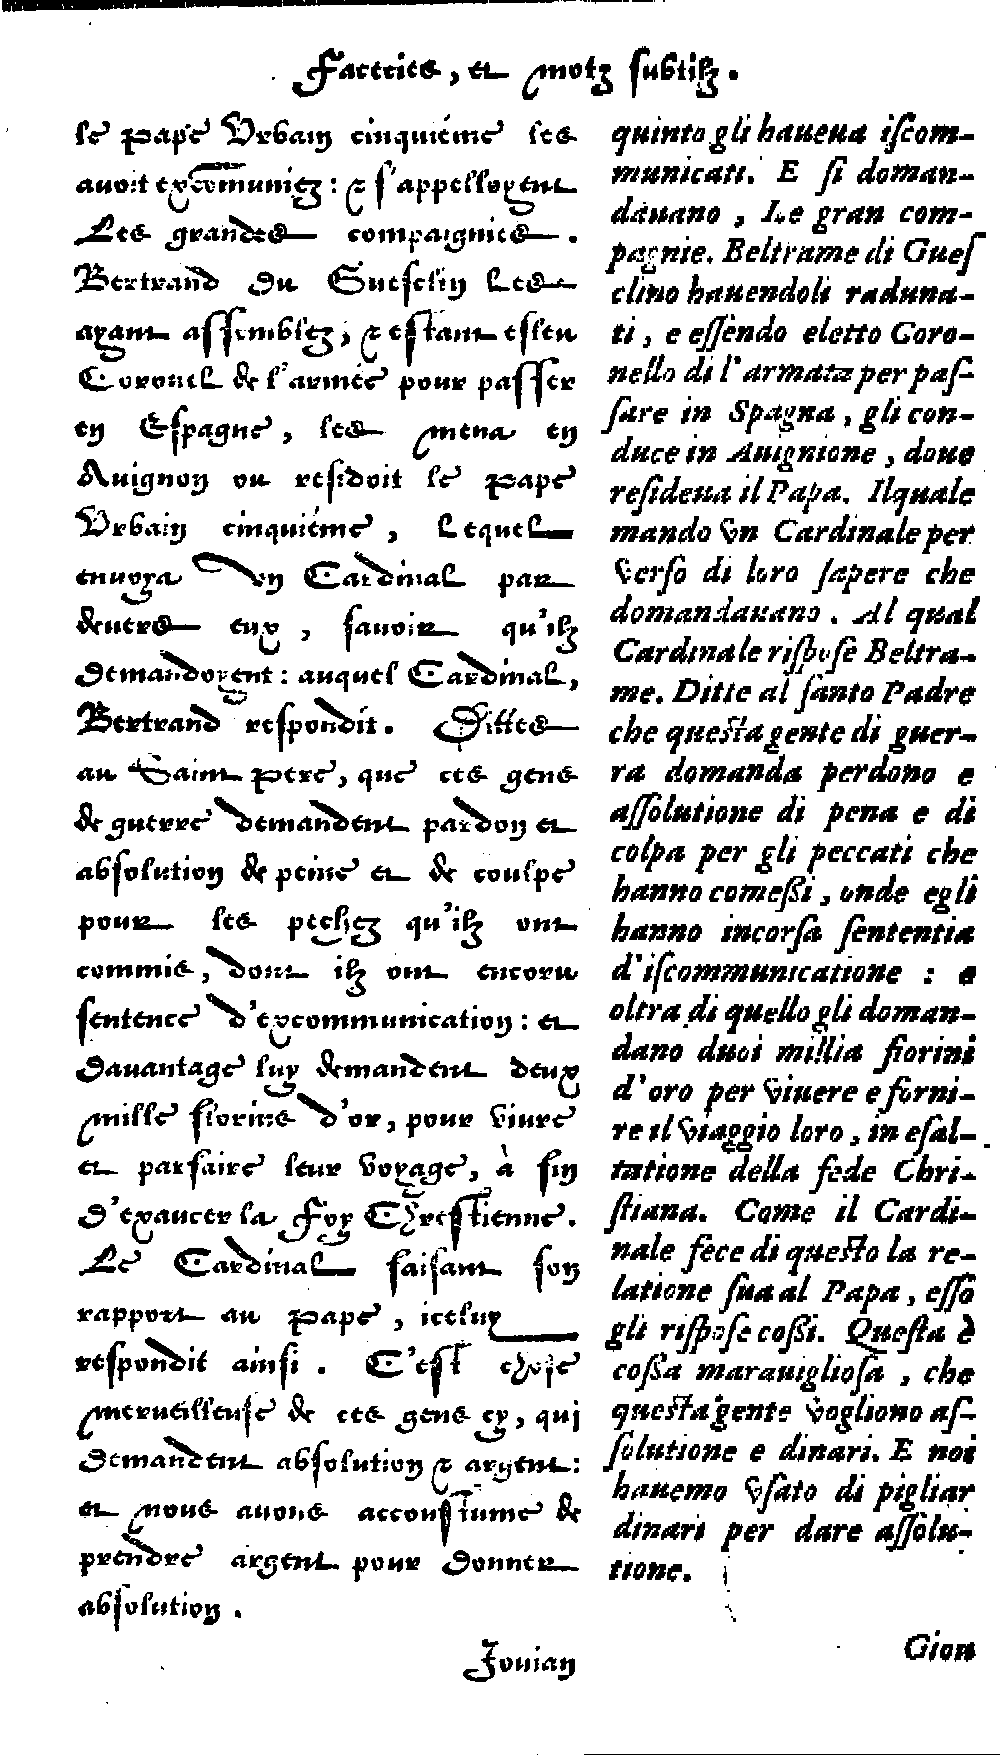 Faceties, et motz subtilz.
le pape Vrbain cinquiéme les
auoit excōmuniez: & s'appelloyent
Les grandes compaignies.
Bertrand du Guesclin les
ayant assemblez, & estant esleu
Coronel de l'armée pour passer
en Espagne, les mena en
Auignon ou residoit le pape
Vrbain cinquiéme, lequel
enuoya vn Cardinal par
deuers eux, sauoir qu'ilz
demandoyent: auquel Cardinal,
Bertrand respondit. Dittes
au Saint pere, que ces gens
de guerre demandent pardon et
absolution de peine et de coulpe
pour les pechez qu'ilz ont
commis, dont ilz ont encoru
sentence d'excommunication: et
dauantage luy demandent deux
mille florins d'or, pour viure
et parfaire leur voyage, à fin
d'exaucer la Foy Chrestienne.
Le Cardinal faisant son
rapport au pape, iceluy
respondit ainsi. C'est chose
merueilleuse de ces gens cy, qui
demandent absolution & argent:
et nous auons accoustume de
prendre argent pour donner
absolution.
Jouian
quinto gli haueua iſcom-
municati. E ſi doman-
dauano, Le gran com-
pagnie. Beltrame di Gueſ
clino hauendoli raduna-
ti, e eſſendo eletto Coro-
nello di l'armata per paſ-
ſare in Spagna, gli con-
duce in Auignione, doue
reſideua il Papa. Ilquale
mando vn Cardinale per
verſo di loro ſapere che
domandauano. Al qual
Cardinale riſpoſe Beltra-
me. Ditte al ſanto Padre
che queſta gente di guer-
ra domanda perdono e
aſſolutione di pena e di
colpa per gli peccati che
hanno comeßi, onde egli
hanno incorſa ſententia
d'iſcommunicatione: e
oltra di quello gli doman-
dano duoi millia fiorini
d'oro per viuere e forni-
re il viaggio loro, in eſal-
tatione della fede Chri-
ſtiana. Come il Cardi-
nale fece di queſto la re-
latione ſua al Papa, eſſo
gli riſpoſe coßi. Queſta è
coßa marauiglioſa, che
queſta gente vogliono aſ-
ſolutione e dinari. E noi
hauemo vſato di pigliar
dinari per dare aſſolu-
tione.
Gion